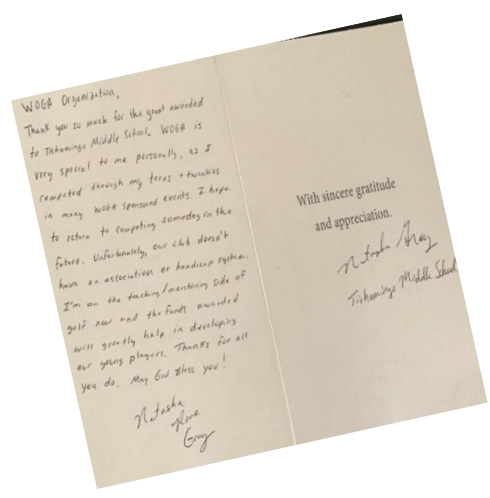 WOGA Organization,
Thank you so much for the grant awarded
to Tishomingo Middle School. WOGA is
very special to me personally, as I
competed through my teens + twenties
in many WOGA sponsored events. I hope
to return to competing someday in the
future. Unfortunately, our club doesn't
have an association or handicap system.
I'm on the teaching/mentoring side of
golf now and the funds awarded
will greatly help in developing
our young players. Thanks for all
you do. May God Bless you!
Natosha
Rose
Gray
With sincere gratitude
and appreciation.
Natosha Gray
Tishomingo Middle School